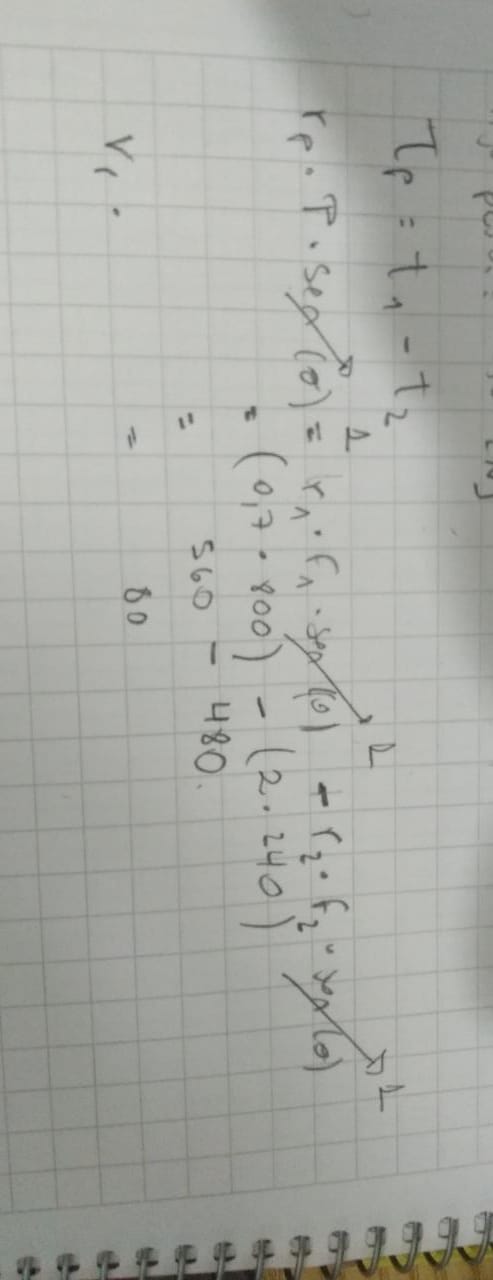 [N]
τp = t1 - t2
rp · P · sen(0) 1 = r1 · F1 · sen(0) 1 - r2 · F2 · sen(0) 1
= (0,7 · 800) - (2 · 240)
= 560 - 480.
= 80